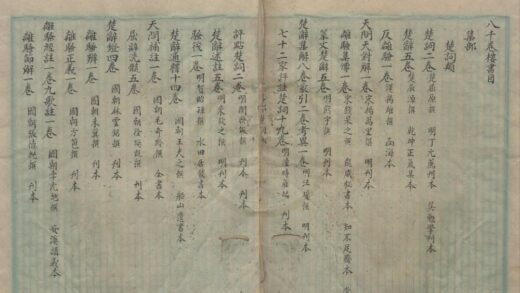 八千卷樓書目
集部
楚詞類
楚詞二卷 楚屈原撰 明丁元薦刊本 吳勉學刊本
楚辭五卷 楚屈原撰 乾坤正氣集本
反離騷一卷 漢揚雄撰
天問天對解一卷 宋楊萬里撰 明刊本
離騷集傳一卷 宋錢杲之撰 龍威秘書本 知不足齋本
楚辭集解八卷 蒙引二卷考異一卷 明汪瑗撰 明刊本
七十二家評註楚詞十九卷 明 刊本
評點楚詞二卷 明 撰 刊本
楚辭述註五卷 明來欽之撰 明刊本
騷筏一卷 明賀貽孫撰 水田居叢書本
楚辭通釋十四卷 國朝王夫之撰 船山遺書本
天問補註一卷 國朝毛奇齡撰 全書本
屈辭洗髓五卷 國朝徐煥龍撰 刊本
楚辭燈四卷 國朝林雲銘撰 刊本
離騷辨一卷 國朝朱冀撰 刊本
離騷正義一卷 國朝方苞撰 刊本
離騷經註一卷九歌註一卷 國朝李光地撰 安溪 本
離騷節解一卷 國朝張德純撰 刊本